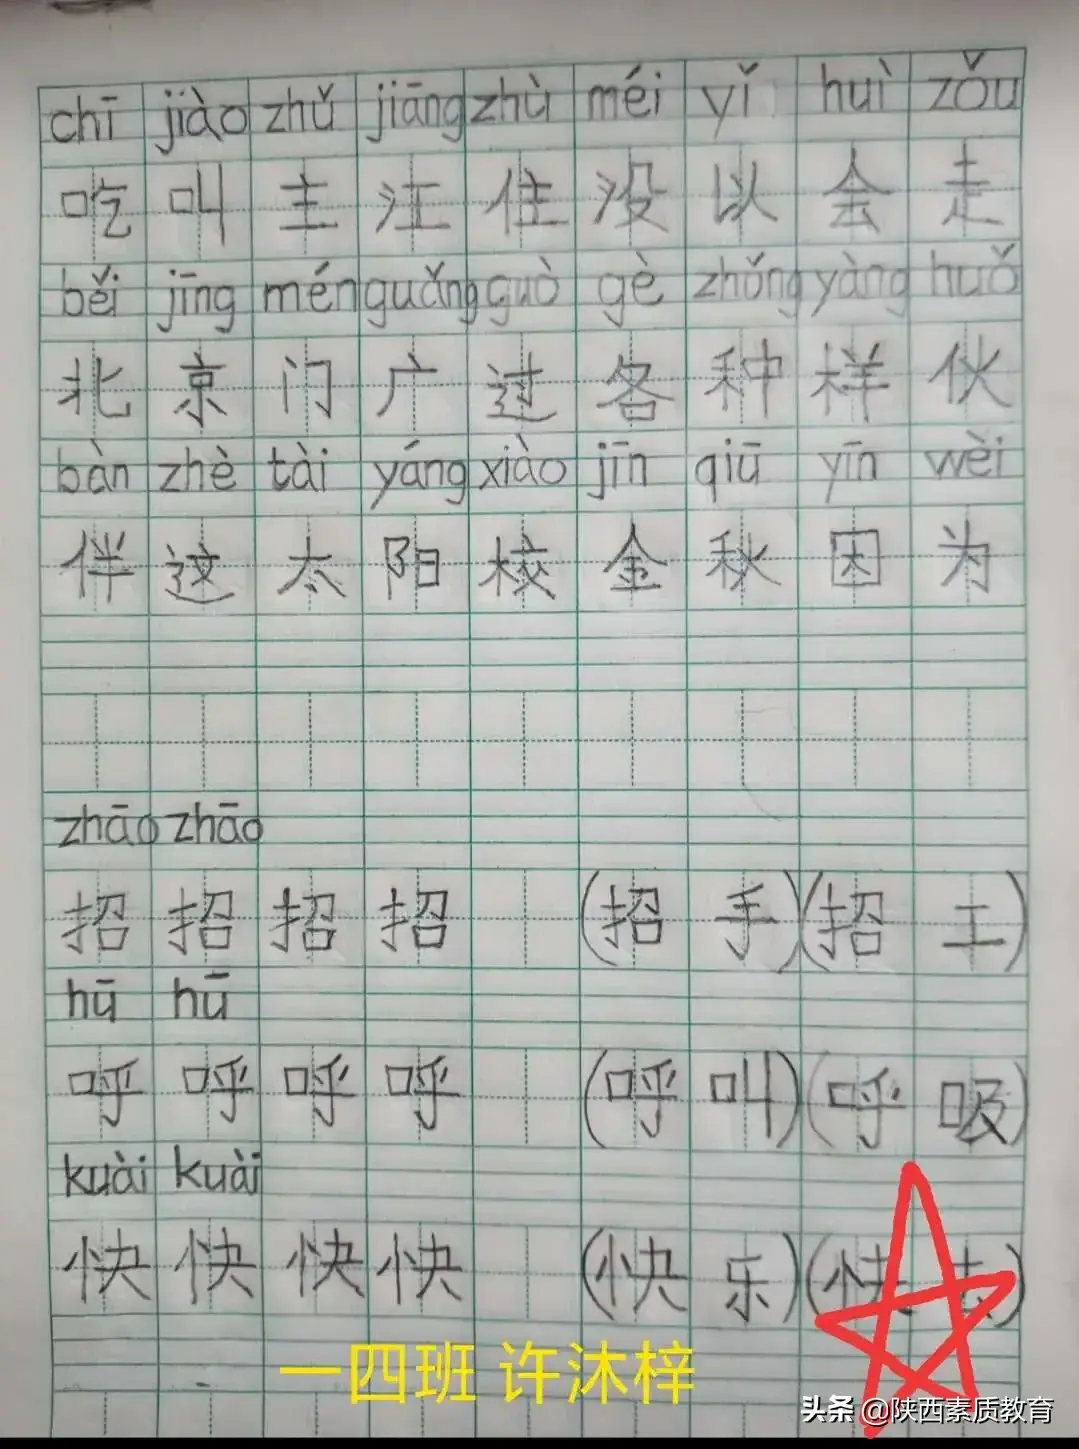 chī jiào zhǔ jiāng zhù méi yǐ huì zǒu
吃 叫 主 江 住 没 以 会 走
běi jīng mén guǎng guò gè zhǒng yàng huǒ
北 京 门 广 过 各 种 样 伙
bàn zhè tài yáng xiào jīn qiū yīn wèi
伴 这 太 阳 校 金 秋 因 为
zhāo zhāo
招 招 招 招 (招 手) (招 工)
hū hū
呼 呼 呼 呼 (呼 叫) (呼 吸)
kuài kuài
快 快 快 快 (快 乐) (快 去)
一四班 许沐梓
头条 @陕西素质教育